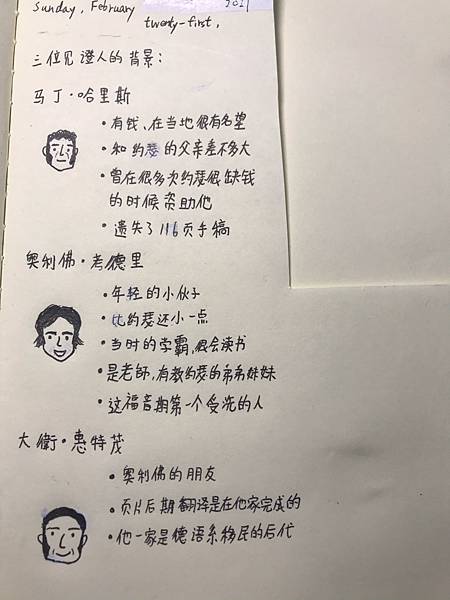 Sunday, February
twenty-first,
三位见證人的背景：
马丁·哈里斯
·有钱、在当地很有名望
·和约瑟的父亲差不多大
·曾在很多次约瑟很缺钱
的时候资助他
·遗失了116页手稿
奥利佛·考德里
·年轻的小伙子
·比约瑟还小一点
·当时的学霸,很会读书
·是老師,有教约瑟的弟弟妹妹
·这福音期第一个受洗的人
大衛·惠特茂
·奥利佛的朋友
·页片后期翻译是在他家完成的
·他一家是德语系移民的后代